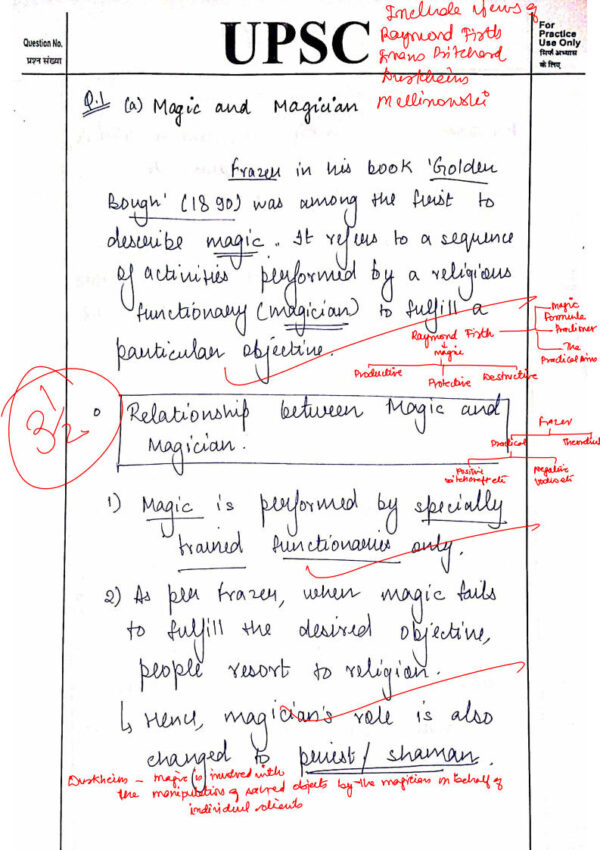 Question No.
प्रश्न संख्या
UPSC
For
Practice
Use Only
सिर्फ अभ्यास
के लिए
Include views of
Raymond Firth
Evans Pritchard
Durkheim
Mellinowski
Q.1 (a) Magic and Magician
Frazer in his book 'Golden
Bough' (1890) was among the first to
describe magic. It refers to a sequence
of activities performed by a religious
functionary (magician) to fulfill a
particular objective.
Raymond Firth
magic
Productive
Protective
Destructive
Magic
Formula
The
Practical Aims
3 1/2
Relationship between Magic and
Magician.
Frazer
Practical
Theoretical
Positive
witchcraft etc
Negative
1) Magic is performed by specially
trained functionaries only.
2) As per Frazer, when magic fails
to fulfill the desired objective,
people resort to religion.
↳ Hence, magician's role is also
changed to priest/shaman.
Durkheim - magic is involved with
the manipulation of sacred objects by the magician on behalf of
individual clients